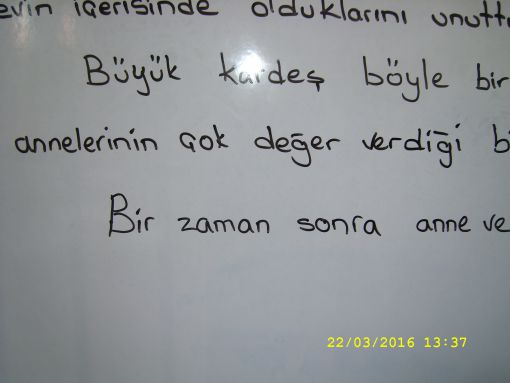 evin içerisinde olduklarını unuttu
Büyük kardeş böyle bir
annelerinin çok değer verdiği b
Bir zaman sonra anne ve
22/03/2016 13:37